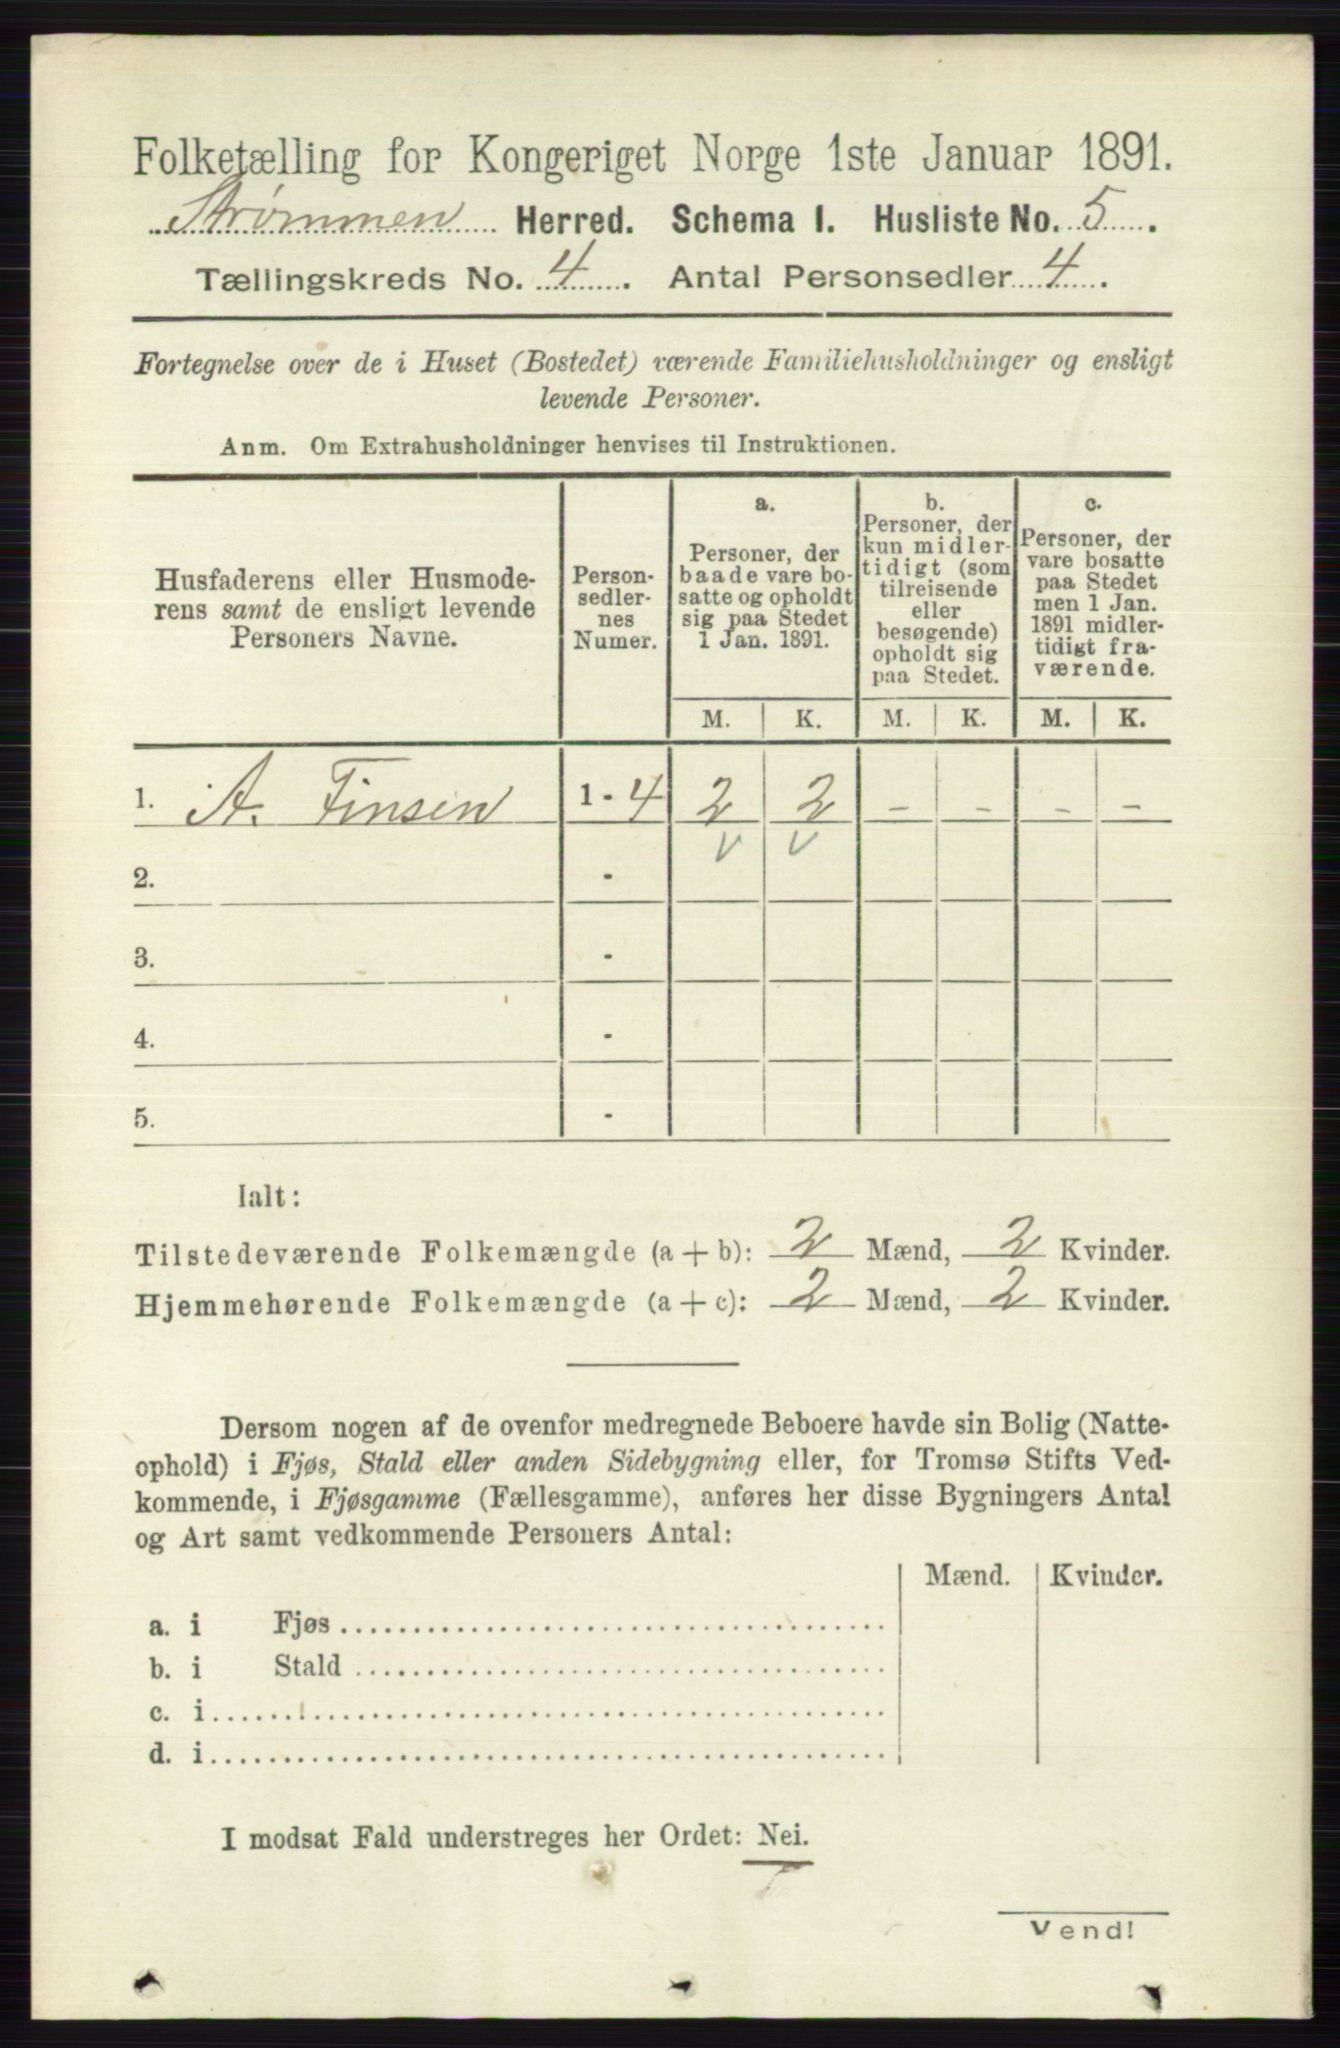 Folketælling for Kongeriget Norge 1ste Januar 1891.
Strømmen Herred. Schema I. Husliste No. 5.
Tællingskreds No. 4. Antal Personsedler 4.
Fortegnelse over de i Huset (Bostedet) værende Familiehusholdninger og ensligt
levende Personer.
Anm. Om Extrahusholdninger henvises til Instruktionen.
Husfaderens eller Husmode-
rens samt de ensligt levende
Personers Navne.
Person-
sedler-
nes
Numer.
a.
Personer, der
baade vare bo-
satte og opholdt
sig paa Stedet
1 Jan. 1891.
b.
Personer, der
kun midler-
tidigt (som
tilreisende
eller
besøgende)
opholdt sig
paa Stedet.
c.
Personer, der
vare bosatte
paa Stedet
men 1 Jan.
1891 midler-
tidigt fra-
værende.
M. K. M. K. M. K.
1. A. Finsen 1 - 4 2 2 - - - -
v v
2. -
3. -
4. -
5. -
Ialt:
Tilstedeværende Folkemængde (a + b): 2 Mænd, 2 Kvinder.
Hjemmehørende Folkemængde (a + c): 2 Mænd, 2 Kvinder.
Dersom nogen af de ovenfor medregnede Beboere havde sin Bolig (Natte-
ophold) i Fjøs, Stald eller anden Sidebygning eller, for Tromsø Stifts Ved-
kommende, i Fjøsgamme (Fællesgamme), anføres her disse Bygningers Antal
og Art samt vedkommende Personers Antal:
Mænd. Kvinder.
a. i Fjøs
b. i Stald
c. i
d. i
I modsat Fald understreges her Ordet: Nei.
Vend!